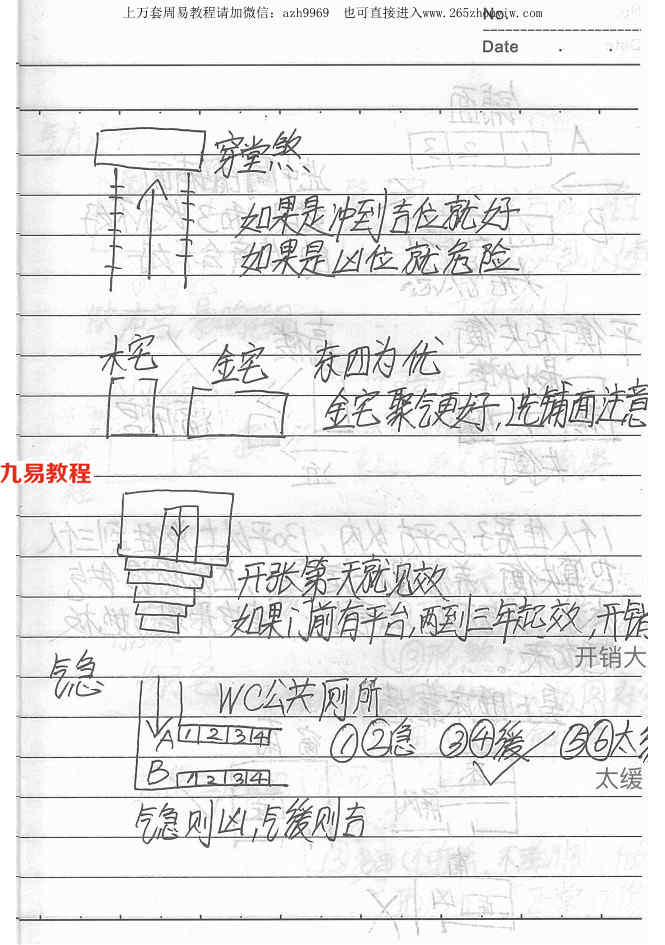 上万套周易教程请加微信：azh9969 也可直接进入www.265zhouyiw.com
No.
Date . .
穿堂煞
如果是冲到吉位就好
如果是凶位就危险
木宅 金宅 东四为优
金宅聚气更好，选铺面注意
九易教程
开张第一天就见效
如果门前有平台，两到三年起效，开销
开销大
气急
WC公共厕所
A 1 2 3 4 ①②急 ③④缓 ⑤⑥太缓
B 1 2 3 4
太缓
气急则凶，气缓则吉